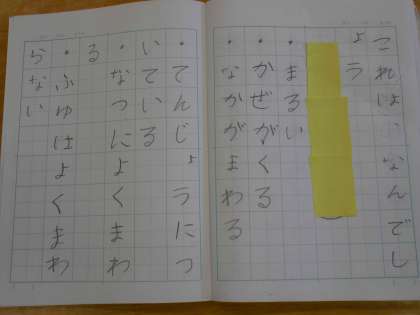 これは、なんでし
ょう
・まるい
・かぜがくる
・なかがまわる
・てんじょうにつ
いている
・なつによくまわ
る
・ふゆはよくまわ
らない